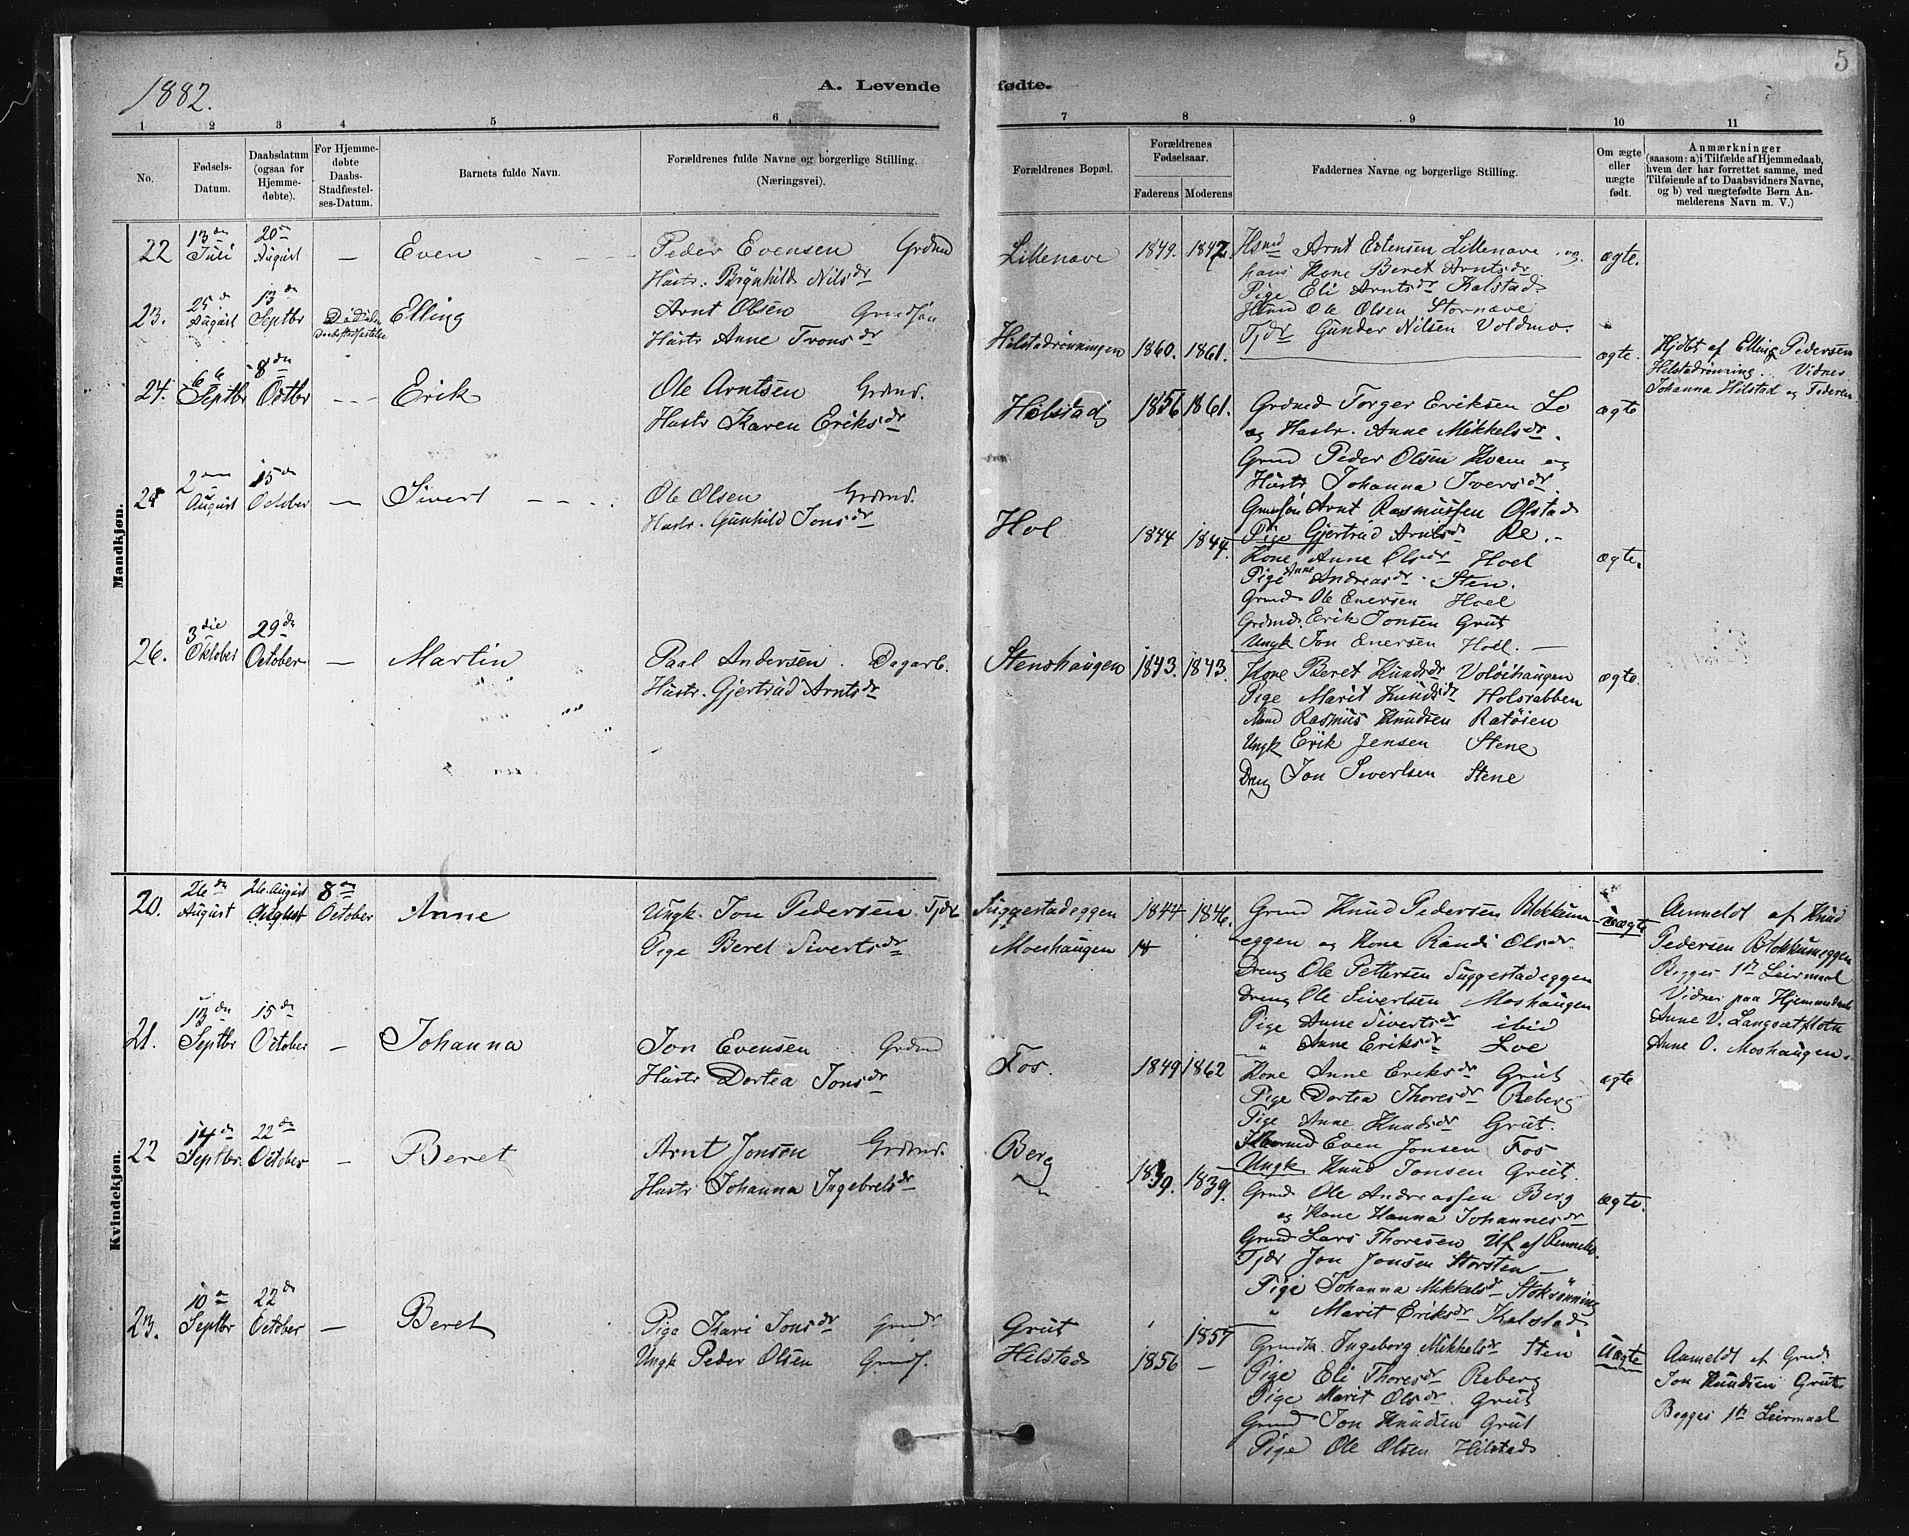 5
1882.
A. Levende
fødte.
1 2 3 4 5 6
7 8 9 10 11
No.
Fødsels-Datum.
Daabsdatum (ogsaa for Hjemmedøbte).
For Hjemmedøbte Daabs-Stadfæstelses-Datum.
Barnets fulde Navn.
Forældrenes fulde Navne og borgerlige Stilling.
(Næringsvei).
Forældrenes Bopæl.
Forældrenes Fødselsaar.
Faderens Moderens
Faddernes Navne og borgerlige Stilling.
Om ægte eller uægte født.
Anmærkninger
(saasom: a) i Tilfælde af Hjemmedaab,
hvem der har forrettet samme, med
Tilføiende af to Daabsvidners Navne,
og b) ved uægtefødte Børn Anmelderens Navn m. V.)
Mandkjøn.
22 13de Juli 20de August — Even
Peder Evensen Grdmd
Hustr. Brynhild Nilsdr
Lillenave 1849. 1847.
Arnt Estensen Lillenave og
hans Kone Beret Arntsdr
Pige Eli Arntsdr Kalstad
Ole Olsen Stornave
Tjdr Gunder Nilsen Voldmo
ægte.
23. 25de August 13de Septbr Elling
Arnt Olsen
Hustr Anne Tronsdr
Hilstadrønningen 1860. 1861.
ægte.
Hjdbt af Elling Pedersen
Hilstadrønning. Vidner
Johanna Hilstad og
24. 6te Septbr 8de Octbr Erik
Ole Arntsen Grdmd.
Hustr Karen Eriksdr
Hilstad 1856 1861.
Grdmd Torger Eriksen Lo
og Hustr. Anne Mikkelsdr.
Grmd Peder Olsen Kvam og
Hustr Johanna Iversdr
Arnt Rasmussen Olstad
Pige Gjertrud Arntsdr Re.
ægte
25 2den August 15de October — Sivert
Ole Olsen Grdmd.
Hustr. Gunhild Jonsdr
Hol 1844 1844.
Kone Anne Olsdr Hoel
Pige Anne Andreasdr Sten.
Grmd. Ole Enersen Hoel
Grdmd. Erik Jonsen Grut
Ungk Jon Enersen Hoel.
ægte.
26. 3die Oktober 29de October — Martin
Paal Andersen. Dagarb.
Hustr. Gjertrud Arntsdr
Stenshaugen 1843. 1843.
Kone Beret Knudsdr Voløihaugen
Pige Marit Knudsdr Holsrabben
Rasmus Knudsen Ratøien
Ungk Erik Jensen Stene
Dreng Jon Sivertsen Stene
ægte.
Kvindekjøn.
20. 26de August 26. August August 8de October Anne
Ungk. Jon Pedersen Tjdr
Pige Beret Sivertsdr
Suggestadeggen
Moeshaugen
1844 1846.
Grmd Knud Pedersen Blokkum
eggen og Kone Randi Olsdr
Dreng Ole Pettersen Suggestadeggen
Dreng Ole Sivertsen Moshaugen
Pige Anne Sivertsdr ibid
" Anne Eriksdr Loe
uægte
Anmeldt af Knud
Pedersen Blokkumeggen
Begges 1ste Leirmaal
Vidner paa Hjemmedaab
Anne V. Langsætfloten
Anne O. Moshaugen.
21. 13de Septbr 15de October — Johanna
Jon Evensen Grdmd
Hustr Dortea Jonsdr
Fos. 1849 1862
Kone Anne Eriksdr Grut
Pige Dortea Thoresdr Reberg
Pige Anne Knudsdr Grut.
Even Jonsen Fos
Ungk Knud Jonsen Grut.
ægte
22 14de Septbr. 22de October — Beret
Arnt Jonsen Grdmd.
Hustr Johanna Ingebretsdr
Berg 1839. 1839.
Grmd. Ole Andreassen Berg
og Kone Hanna Johannesdr
Grmd Lars Thoresen
Tjdr Jon Jonsen Storsten
Pige Johanna Mikkelsdr
" Marit Eriksdr Kalstad
ægte.
23. 10de Septbr 22de October — Beret
Pige Kari Jonsdr
Ungk Peder Olsen
Grut
Hilstad
1857
1856 —
Ingeborg Mikkelsdr Sten
Pige Eli Thoresdr Reberg
Pige Marit Olsdr. Grut
Grmd Jon Knudsen Grut
Pige Ole Olsen Hilstad
Uægte
Anmeldt af Grmd.
Jon Knudsen Grut
Begges 1ste Leirmaal